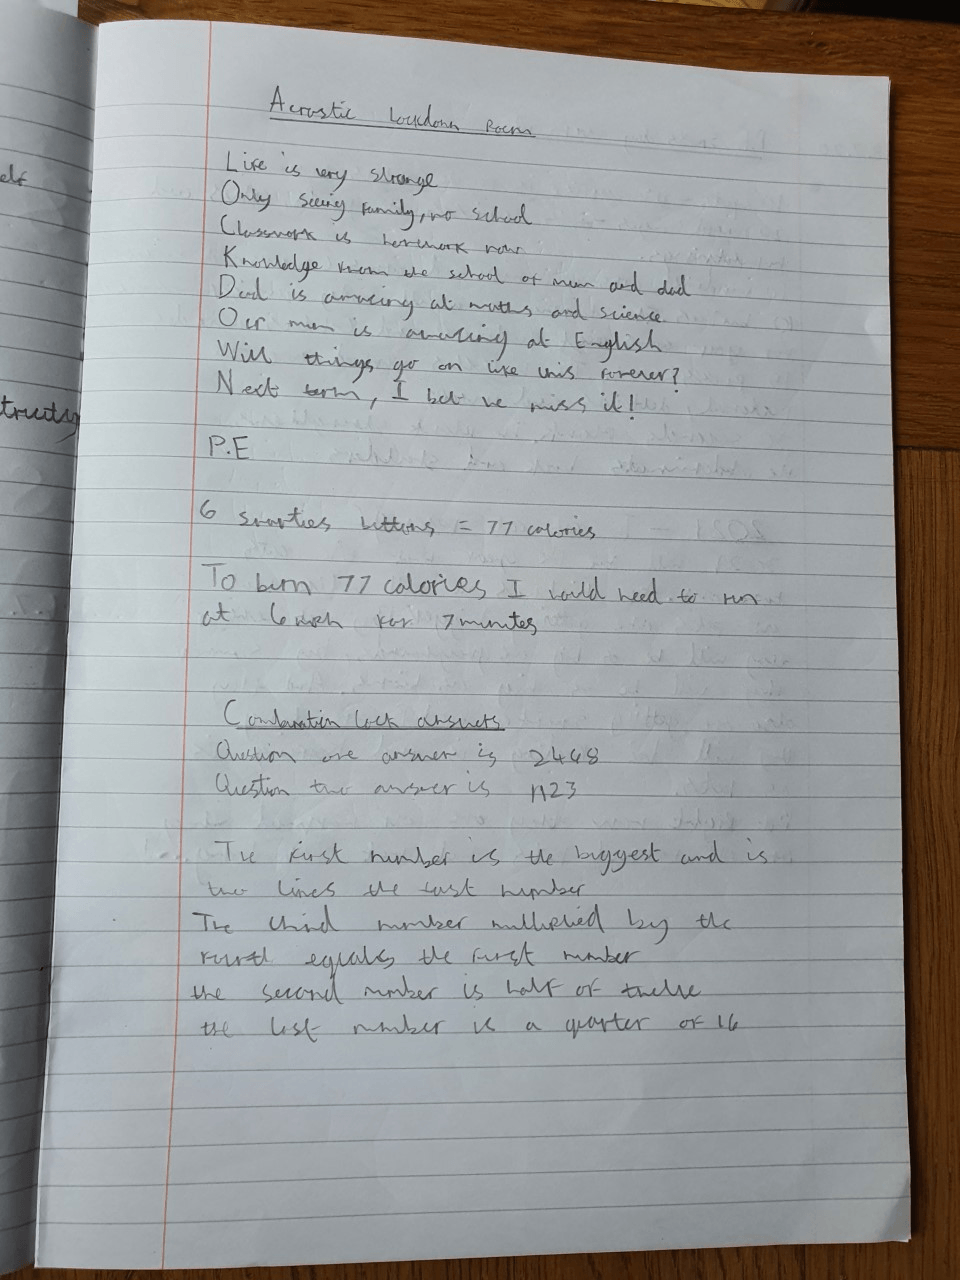 elf
tricity
Acrostic Lockdown Poem
Life is very strange
Only seeing family, no school
Classwork is homework now
Knowledge from the school of mum and dad
Dad is amazing at maths and science
Our mum is amazing at English
Will things go on like this forever?
Next term, I bet we miss it!
P.E
6 smarties buttons = 77 calories
To burn 77 calories I would need to run
at 6 mph for 7 minutes
Combination lock answers
Question one answer is 2468
Question two answer is 1123
The first number is the biggest and is
two times the last number
The third number multiplied by the
fourth equals the first number
the second number is half of twelve
the last number is a quarter of 16